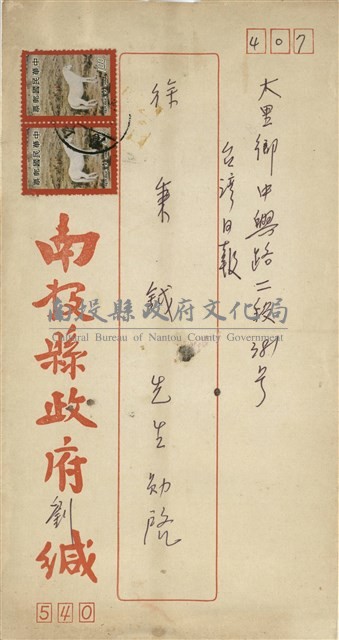 407
大里鄉中興路二段381号
台湾日報
徐秉鉞先生勛啟
南投縣政府劉緘
540
中華民國郵票
中華民國郵票
南投縣政府文化局
Cultural Bureau of Nantou County Government